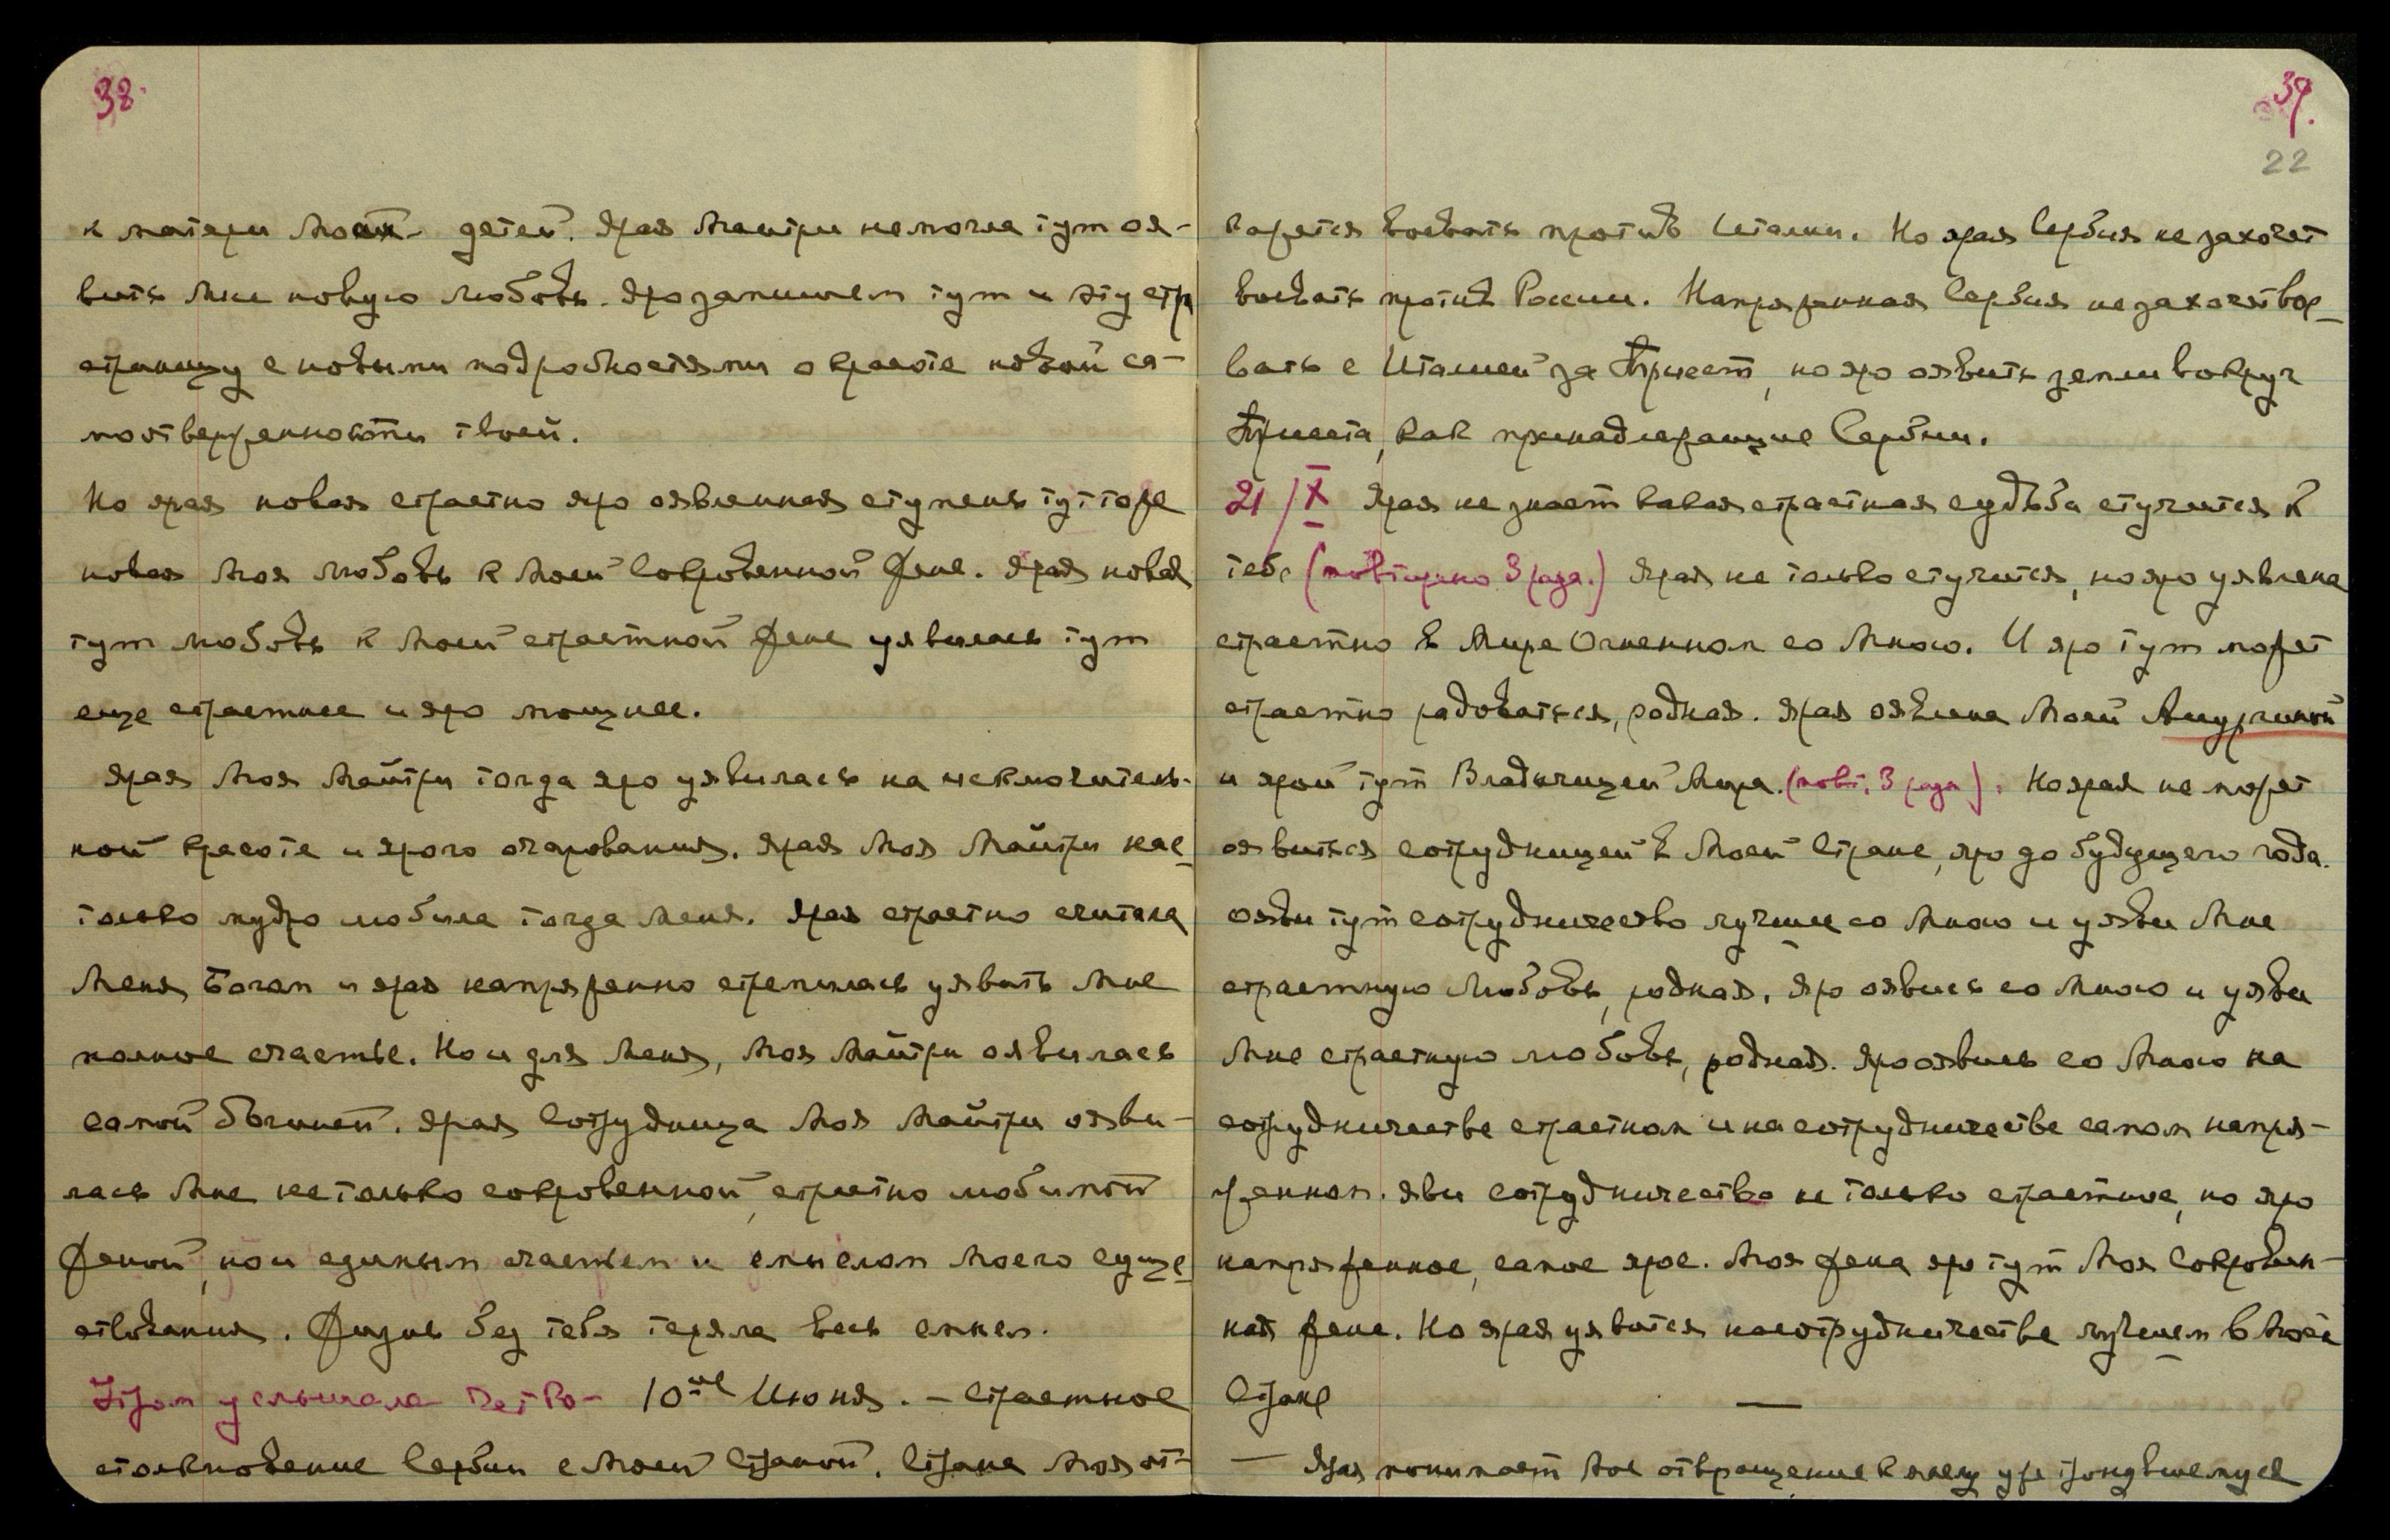 38.
к матери Моих детей. Ярая Майтри не могла тут оя-
вить Мне новую любовь. Яро запишем тут и эту стр
страницу с новыми подробностями о красоте новой са-
моотверженности твоей.
Но ярая новая страстно яро оявленная ступень тут тоже
новая Моя любовь к Моей Сокровенной Жене. Ярая новая
тут любовь к Моей страстной Жене уявилась тут
еще страстнее и яро мощнее.
Ярая Моя Майтри тогда яро уявилась на исключитель-
ной красоте и ярого очарования. Ярая Моя Майтри нас-
только мудро любила тогда Меня. Ярая страстно считала
Меня Богом и ярая напряженно стремилась уявить Мне
полное счастье. Но и для Меня, Моя Майтри оявилась
самой богиней. Ярая Сотрудница Моя Майтриояви-
лась Мне не только сокровенной, страстно любимой
Женой, но и единым счастьем и смыслом Моего суще-
ствования. Жизнь без тебя теряла весь смысл.
Утром услышала 10ое Июня. – Страстное
столкновение Сербии с Моей Страной. Страна Моя от-
39.
22
кажется воевать против Италии. Но ярая Сербия не захочет
воевать против России. Напряженная Сербия не захочет вое-
вать с Италией за Триест, но яро оявить земли вокруг
Триеста, как принадлежащие Сербии.
21/X Ярая не знает какая страстная судьба стучится к
тебе (повторено 3 раза.) Ярая не только стучится, но яро уявлена
страстно в Мире Огненном со Мною. И яро тут может
страстно радоваться, родная. Ярая оявлена Моей
и ярой тут Владычицей Мира. (повт. 3 раза). Но ярая не может
оявиться сотрудницей в Моей Стране, яро до будущего года.
Ояви тут сотрудничество лучшее со Мною и уяви Мне
страстную любовь, родная. Яро оявись со Мною и уяви
Мне страстную любовь, родная. Яро оявись со Мною на
сотрудничестве страстном и на сотрудничестве самом напря-
женном. Яви сотрудничество не только страстное, но яро
напряженное, самое ярое. Моя Жена яро тут Моя Сокровен-
ная Жена. Но ярая уявится на сотрудничестве лучшем в Моей
Стране
— Ярая понимает Мое отвращение к уже